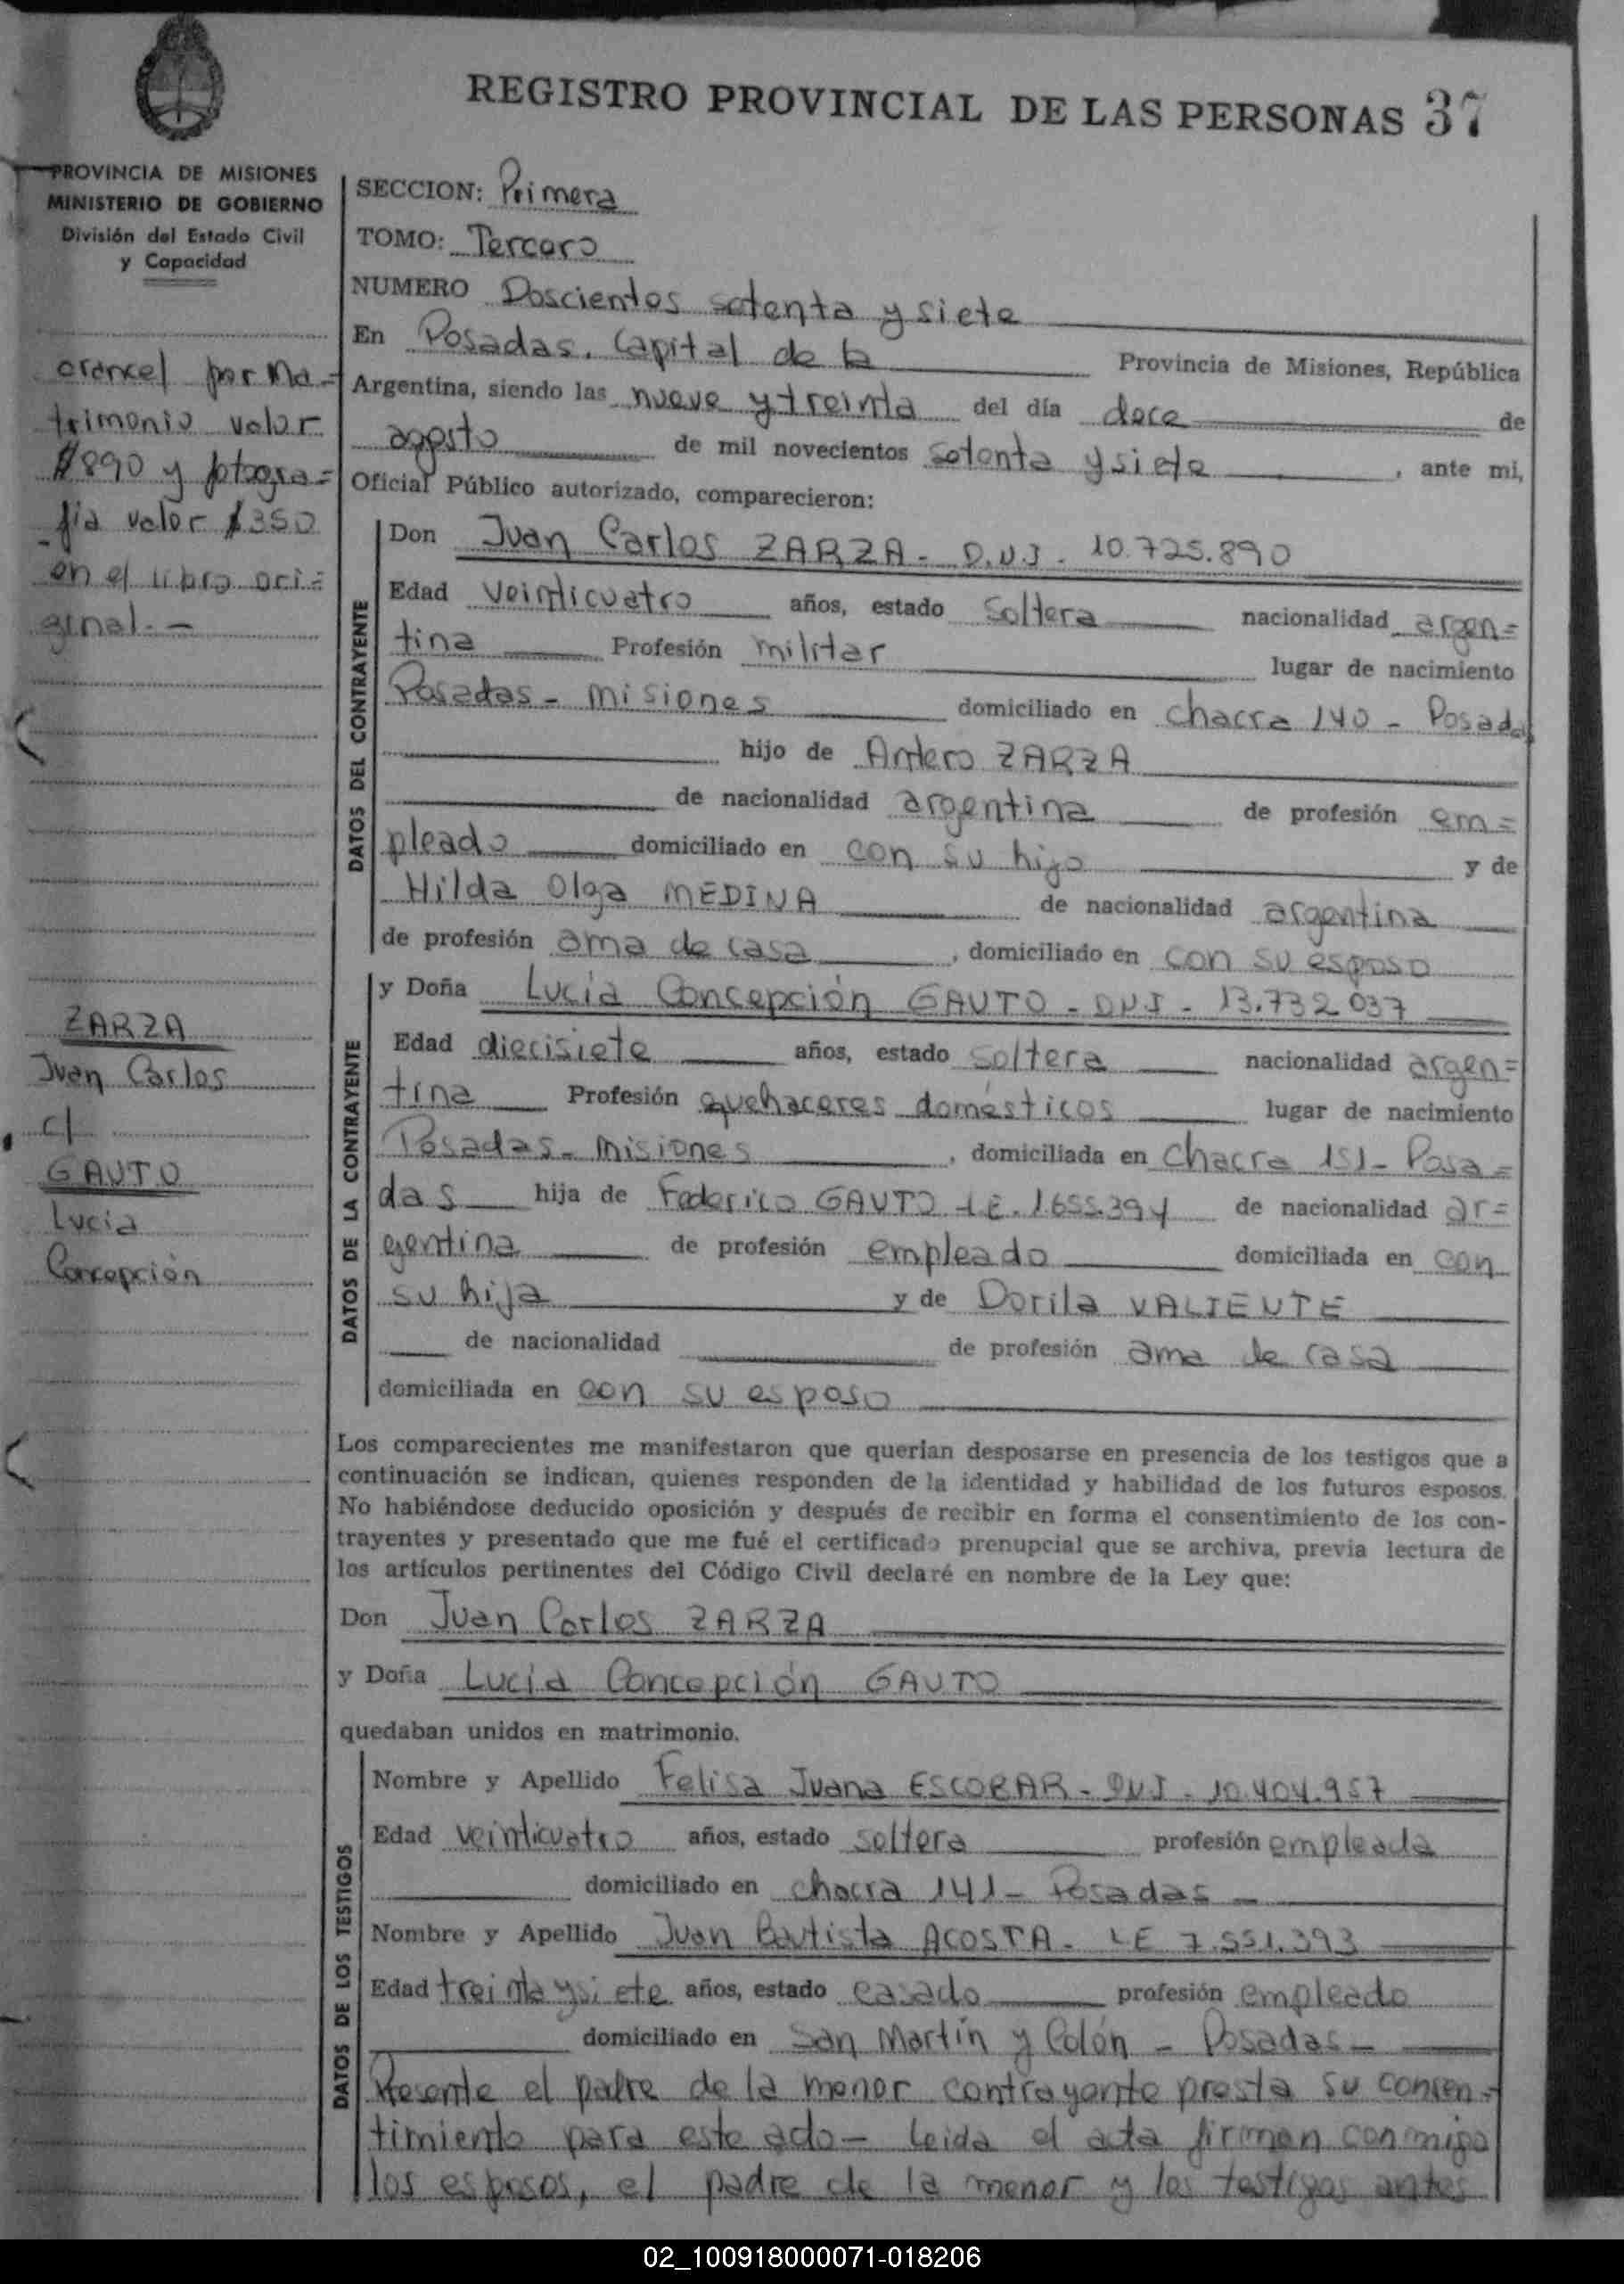 REGISTRO PROVINCIAL DE LAS PERSONAS 37
PROVINCIA DE MISIONES
MINISTERIO DE GOBIERNO
División del Estado Civil
y Capacidad
arancel por Ma=
trimonio valor
$890 y fotogra=
fía valor $350
en el libro ori=
ginal.-
ZARZA
Juan Carlos
c/
GAUTO
Lucia
Concepción
SECCION: Primera
TOMO: Tercero
NUMERO Doscientos setenta y siete
En Posadas, Capital de la Provincia de Misiones, República
Argentina, siendo las nueve y treinta del día doce de
agosto de mil novecientos setenta y siete, ante mi,
Oficial Público autorizado, comparecieron:
DATOS DEL CONTRAYENTE
Don Juan Carlos ZARZA - D.N.I. 10.725.890
Edad veinticuatro años, estado soltera nacionalidad argen=
tina Profesión militar lugar de nacimiento
Posadas - Misiones domiciliado en chacra 140 - Posadas
hijo de Antero ZARZA
de nacionalidad argentina de profesión em=
pleado domiciliado en con su hijo y de
Hilda Olga MEDINA de nacionalidad argentina
de profesión ama de casa, domiciliado en con su esposo
DATOS DE LA CONTRAYENTE
y Doña Lucía Concepción GAUTO - DNI - 13.732.037
Edad diecisiete años, estado soltera nacionalidad argen=
tina Profesión quehaceres domésticos lugar de nacimiento
Posadas - Misiones, domiciliada en Chacra 151 - Posa=
das hija de Federico GAUTO LE. 1.655.394 de nacionalidad ar=
gentina de profesión empleado domiciliada en con
su hija y de Dorila VALIENTE
de nacionalidad de profesión ama de casa
domiciliada en con su esposo
Los comparecientes me manifestaron que querían desposarse en presencia de los testigos que a
continuación se indican, quienes responden de la identidad y habilidad de los futuros esposos.
No habiéndose deducido oposición y después de recibir en forma el consentimiento de los con-
trayentes y presentado que me fué el certificado prenupcial que se archiva, previa lectura de
los artículos pertinentes del Código Civil declaré en nombre de la Ley que:
Don Juan Carlos ZARZA
y Doña Lucía Concepción GAUTO
quedaban unidos en matrimonio.
DATOS DE LOS TESTIGOS
Nombre y Apellido Felisa Juana ESCOBAR - DNI - 10.404.957
Edad veinticuatro años, estado soltera profesión empleada
domiciliado en chacra 141 - Posadas -
Nombre y Apellido Juan Bautista ACOSTA - LE 7.551.393
Edad treinta y siete años, estado casado profesión empleado
domiciliado en San Martín y Colón - Posadas -
Presente el padre de la menor contrayente presta su consen=
timiento para este acto - Leida el acta firman conmigo
los esposos, el padre de la menor y los testigos antes
02_100918000071-018206